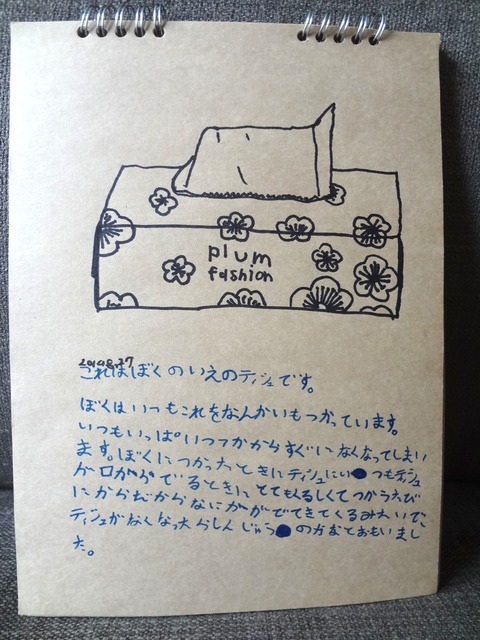 plum
fashion
2019.8.27
これはぼくのいえのティシュです。
ぼくはいつもこれをなんかいもつかっています。
いつもいっぱいつつかからすぐになくなってしまい
ます。ぼくにつかったときにティシュにい つもティシュ
が口からでるときにとてもくるしくてつかうたび
にからだからなにかがでてきてくるみたいで、
ティシュがなくなったらしんじゅう のかなておもいまし
た。